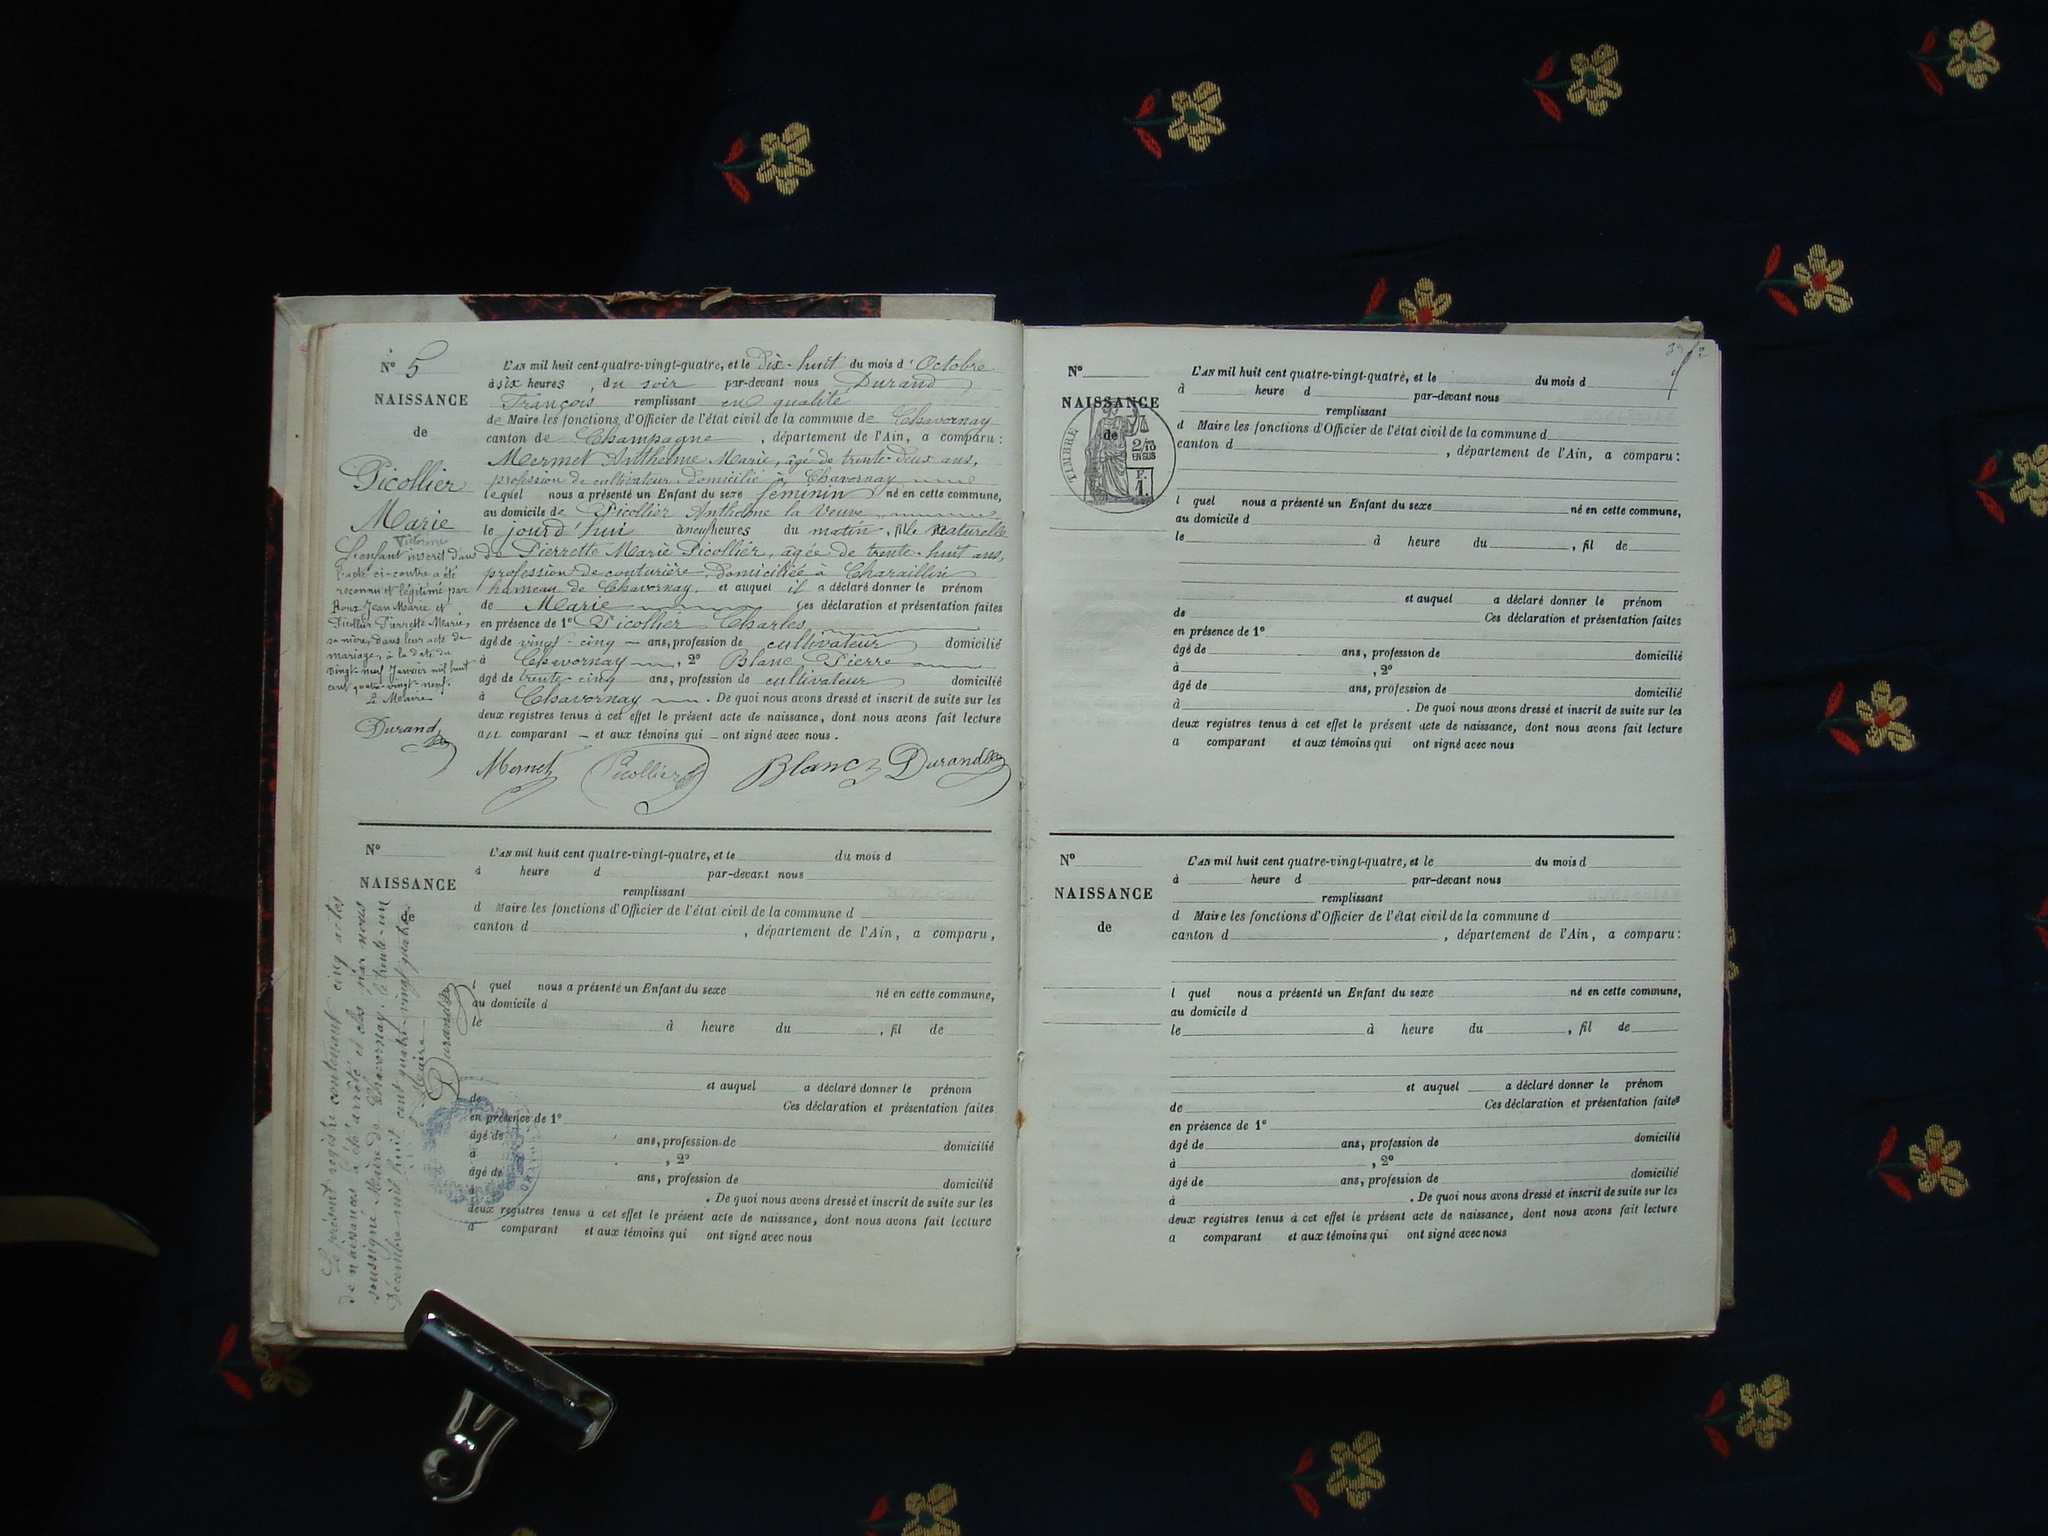 N° 5
NAISSANCE
de
Picollier
Marie
Victorine
L'enfant inscrit dans
l'acte ci-contre a été
reconnu et légitimé par
Roux Jean Marie et
Picollier Pierrette Marie,
sa mère, dans leur acte de
mariage, à la date du
vingt-neuf Janvier mil huit
cent quatre-vingt-neuf.
Le Maire
Durand
L'AN mil huit cent quatre-vingt-quatre, et le Dix-huit du mois d'Octobre
à six heures, du soir par-devant nous Durand
François remplissant en qualité
de Maire les fonctions d'Officier de l'état civil de la commune de Chavornay
canton de Champagne, département de l'Ain, a comparu:
Mermet Anthelme Marie, âgé de trente-deux ans,
profession de cultivateur domicilié à Chavornay
lequel nous a présenté un Enfant du sexe féminin né en cette commune,
au domicile de Picollier Anthelme la veuve
le jourd'hui à neuf heures du matin, fille naturelle
de Pierrette Marie Picollier, agée de trente-huit ans,
profession de couturière domiciliée à Charaillin
hameau de Chavornay, et auquel il a déclaré donner le prénom
de Marie Ces déclaration et présentation faites
en présence de 1° Picollier Charles
âgé de vingt-cinq ans, profession de cultivateur domicilié
à Chavornay, 2° Blanc Pierre
âgé de trente-cinq ans, profession de cultivateur domicilié
à Chavornay. De quoi nous avons dressé et inscrit de suite sur les
deux registres tenus à cet effet le présent acte de naissance, dont nous avons fait lecture
au comparant et aux témoins qui ont signé avec nous.
Mermet Picollier Blanc Durand
N°
NAISSANCE
de
L'AN mil huit cent quatre-vingt-quatre, et le du mois d
à heure d par-devant nous
remplissant
d Maire les fonctions d'Officier de l'état civil de la commune d
canton d , département de l'Ain, a comparu,
l quel nous a présenté un Enfant du sexe né en cette commune,
au domicile d
le à heure du , fil de
et auquel a déclaré donner le prénom
de Ces déclaration et présentation faites
en présence de 1°
âgé de ans, profession de domicilié
à , 2°
âgé de ans, profession de domicilié
à . De quoi nous avons dressé et inscrit de suite sur les
deux registres tenus à cet effet le présent acte de naissance, dont nous avons fait lecture
a comparant et aux témoins qui ont signé avec nous
Le présent registre contenant cinq actes
de naissances a été arrêté et clos par nous
soussigné Maire de Chavornay, le trente-un
Décembre mil huit cent quatre-vingt-quatre.
Le Maire
Durand
N°
NAISSANCE
de
TIMBRE
2/10
EN SUS
F.
1.
L'AN mil huit cent quatre-vingt-quatre, et le du mois d
à heure d par-devant nous
remplissant
d Maire les fonctions d'Officier de l'état civil de la commune d
canton d , département de l'Ain, a comparu:
l quel nous a présenté un Enfant du sexe né en cette commune,
au domicile d
le à heure du , fil de
et auquel a déclaré donner le prénom
de Ces déclaration et présentation faites
en présence de 1°
âgé de ans, profession de domicilié
à , 2°
âgé de ans, profession de domicilié
à . De quoi nous avons dressé et inscrit de suite sur les
deux registres tenus à cet effet le présent acte de naissance, dont nous avons fait lecture
a comparant et aux témoins qui ont signé avec nous
N°
NAISSANCE
de
L'AN mil huit cent quatre-vingt-quatre, et le du mois d
à heure d par-devant nous
remplissant
d Maire les fonctions d'Officier de l'état civil de la commune d
canton d , département de l'Ain, a comparu:
l quel nous a présenté un Enfant du sexe né en cette commune,
au domicile d
le à heure du , fil de
et auquel a déclaré donner le prénom
de Ces déclaration et présentation faites
en présence de 1°
âgé de ans, profession de domicilié
à , 2°
âgé de ans, profession de domicilié
à . De quoi nous avons dressé et inscrit de suite sur les
deux registres tenus à cet effet le présent acte de naissance, dont nous avons fait lecture
a comparant et aux témoins qui ont signé avec nous